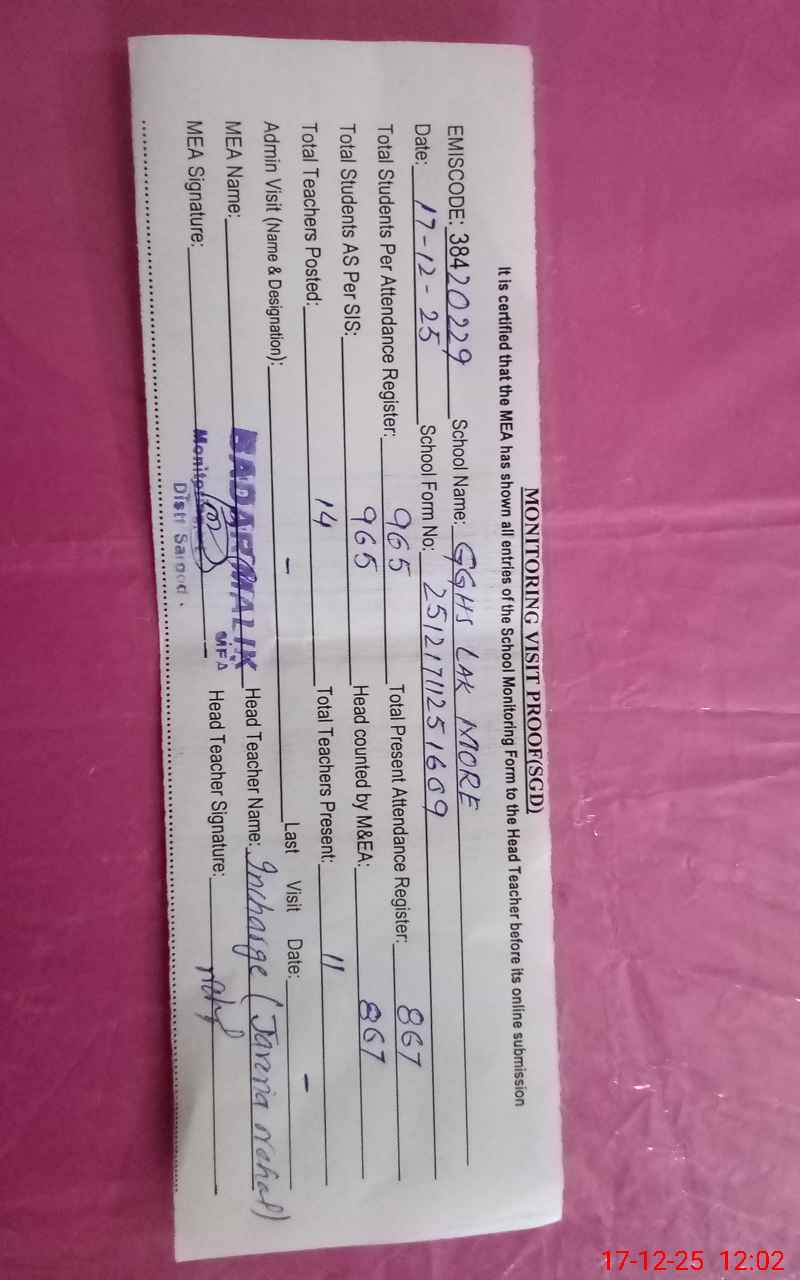 MONITORING VISIT PROOF(SGD)
It is certified that the MEA has shown all entries of the School Monitoring Form to the Head Teacher before its online submission
EMISCODE: 38420229 School Name: GGHS LAK MORE
Date: 17-12-25 School Form No: 2512171125 1609
Total Students Per Attendance Register: 965 Total Present Attendance Register: 867
Total Students AS Per SIS: 965 Head counted by M&EA: 867
Total Teachers Posted: 14 Total Teachers Present: 11
Admin Visit (Name & Designation): - Last Visit Date: -
MEA Name: MALIK Head Teacher Name: Incharge (
MEA
MEA Signature: Head Teacher Signature:
Distt
17-12-25 12:02